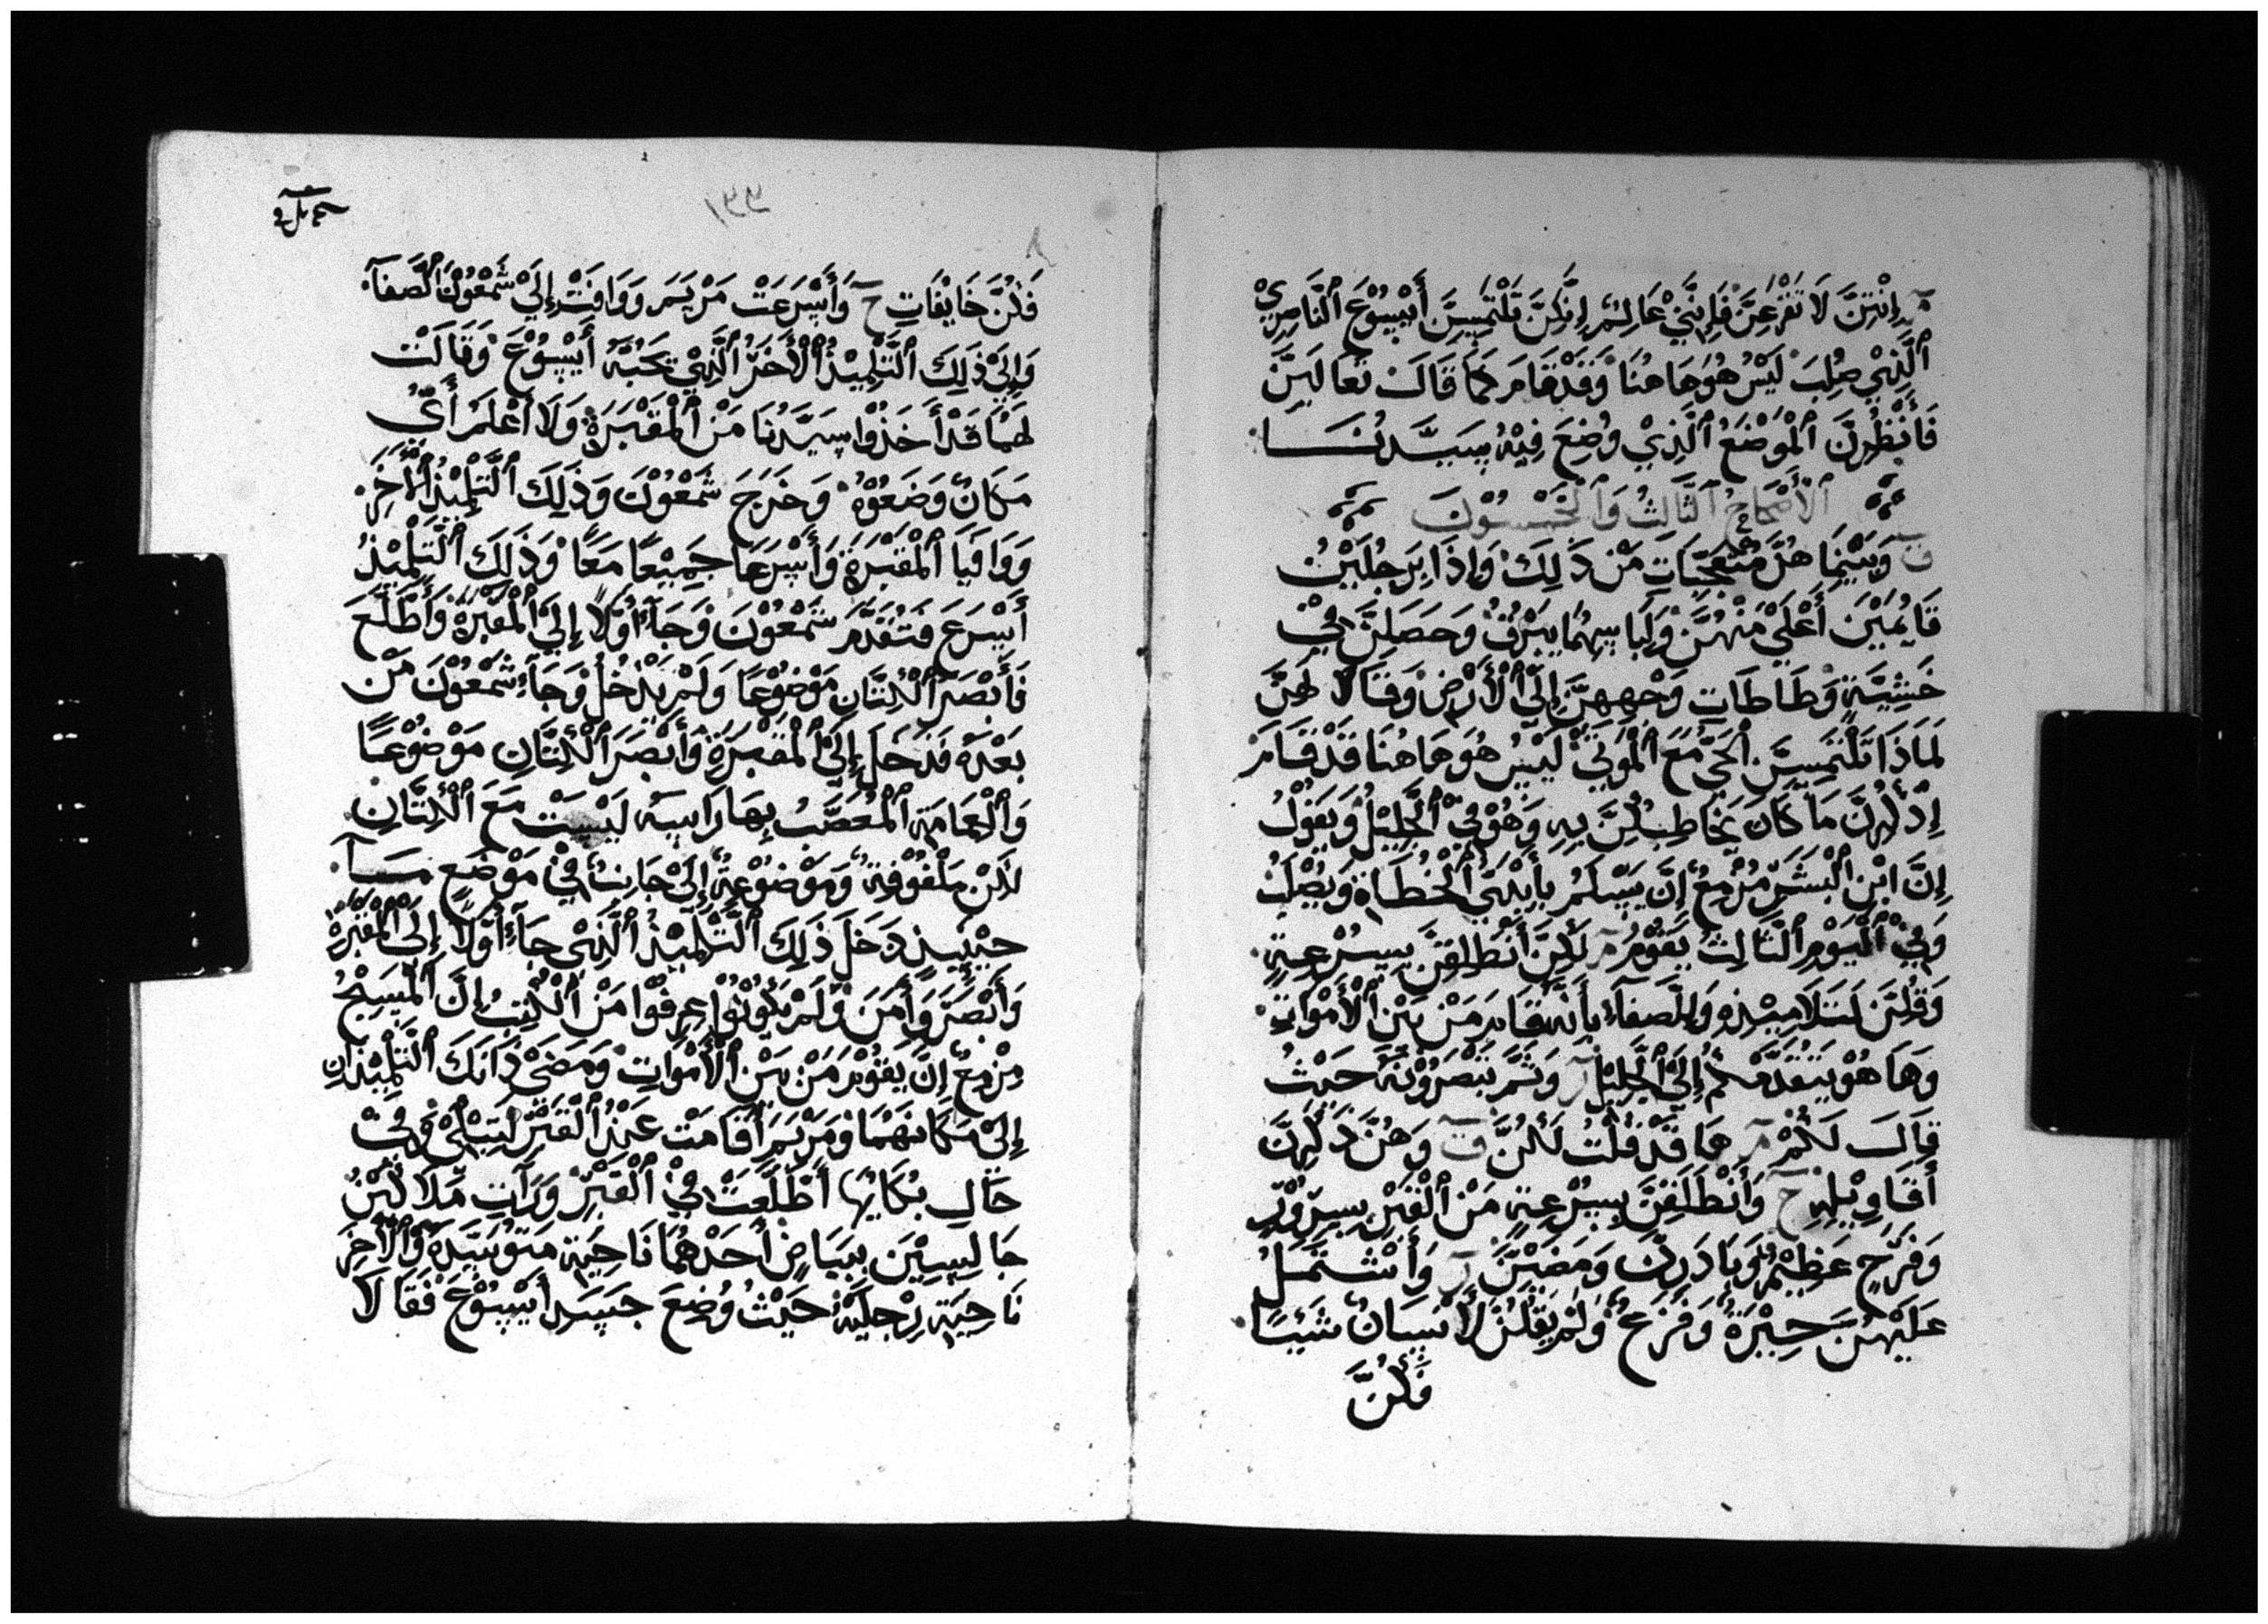 إِنْتِنَّ لَا تَفْزَعِنَّ فَإِنَّنِي عَالِمٌ إِنَّكِنَّ تَلْتَمِسِنَّ أَيْسُوْعَ ٱلنَّاصِرِيْ
ٱلَّذِيْ صُلِبَ لَيْسُ هُوَ هَاهُنَا وَقَدْ قَامَ كَمَا قَالَ تَعَالَيِنَّ
فَٱنْظُرِنَّ ٱلْمَوْضَعُ ٱلَّذِيْ وُضِعَ فِيْهُ سَيَّدُنَا
ٱلْأَصْحَاحُ ٱلثَّالِثُ وَٱلْخَمْسُوْنَ
ق وَبَيْنِمَا هُنَّ مُتَعَجِّبَاتٍ مَنْ ذَلِكَ وَإِذَا بِرَجُلَيْنِ
قَايُمَيْنَ أَعْلَيْ مَنْهُنَّ وَلِبَاسِهُمَا يَبْرُقُ وَحَصَلِنَّ فِيْ
خَشِيَّةٍ وَطَاطَاتِ وَجْهِهِنَّ إِلَيْ ٱلْأَرْضِ وَقَالَا لَهِنَّ
لَمَاذَا تَلْتَمِسِنَّ ٱلْحَيْ مَعَ ٱلْمَوْتَيْ لَيْسُ هُوَ هَاهُنَا قَدْ قَامَ
إِذْكُرِنَّ مَا كَانَ يُخَاطِبُكِنَّ بِهِ وَهُوْ فِيْ ٱلْجَلِيْلُ وَيَقُوْلُ
إِنَّ ابْنِ ٱلْبَشَرِ مُزْمِعٌ إِنَّ يُسْلَمُ بِأَيْدِيْ ٱلْخُطَاةِ وَيُصْلَبُ
وَفِيْ ٱلْيَوْمِ ٱلثَّالِثُ يَقُوْمُ م لَكِنَّ أَنْطَلِقِنَّ بِسُرْعِةٍ
وَقُلِنَّ لَتَلَامِيْذِهِ وَلِلْصَفَآءِ بِأَنَّهُ قَامَ مَنْ بَيْنَ ٱلْأَمْوَاتِ
وَهَا هُوْ يَتَقَدَّمَكُمْ إِلَيْ ٱلْجَلِيْلِ ر وَثَمَّ تُبْصَرُوْنَهُ حَيْثُ
قَالَ لَكُمْ م هَا قَدْ قُلْتُ لَكُنَّ ق وَهُنَّ ذَكَرِنَّ
أَقَاوِيْلِهِ ح وَأَنْطَلَقِنَّ بِسُرْعِةٍ مَنْ ٱلْقَبْرِ بِسِرُوْرٍ
وَفَرَحٍ عَظِيْمٍ وَبَادَرِنَّ وَمَضَيْنَّ ر وَأَشْتَمَلُ
عَلَيْهُنَّ حِيْرَةٌ وَفَزَعٌ وَلَمْ يَقُلُنْ لَأَنْسَانُ شَيْئًا
فَكُنَّ
فَكُنَّ خَايْفَاتٍ ح وَأَسْرَعَتْ مَرْيَمَ وَوَافَتْ إِلَيْ شَمْعُوْنَ ٱلْصَفَآ
وَإِلَيْ ذَلِكَ ٱلتَّلْمِيْذُ ٱلْأَخَرُ ٱلَّذِيْ يَحَبُّهُ أَيْسُوْعَ وَقَالَتْ
لَهُمَا قَدْ أَخَذُوْا سَيَّدُنَا مَنْ ٱلْمَقْبَرَةِ وَلَا أَعْلَمُ أَيُّ
مَكَانٌ وَضَعُوْهُ وَخَرَجَ شَمْعُوْنَ وَذَلِكَ ٱلتَّلْمِيْذُ ٱلْأَخَرِ
وَوَافَيَا ٱلْمَقْبَرَةِ وَأَسْرَعَا جَمِيْعًا مَعًا وَذَلِكَ ٱلتَّلْمِيْذُ
أَسْرَعَ فَتَقَدَّمَ شَمْعُوْنَ وَجَآءَ أَوَّلًا إِلَيْ ٱلْمَقْبَرَةِ وَأَطَّلَعَ
فَأَبْصَرَ ٱلْكِتَّانِ مَوْضُوْعًا وَلَمْ يَدْخُلُ وَجَآءِ شَمْعُوْنَ مَنْ
بَعْدَهُ فَدَخَلَ إِلَيْ ٱلْمَقْبَرَةِ وَأَبْصَرَ ٱلْكِتَّانِ مَوْضُوْعًا
وَٱلْعِمَامَةِ ٱلْمُعَصَّبُ بِهَا رَاسِهُ لَيْسَتْ مَعَ ٱلْكِتَّانِ
لَاكِنْ مَلْفُوْفِةٌ وَمَوْضُوْعِةٌ إِلَيْ جَانِبٌ فِيْ مَوْضَعٍ مَـآ
حِيْنَيِذٍ دَخَلَ ذَلِكَ ٱلتَّلْمِيْذُ ٱلَّذِيْ جَآءَ أَوَّلًا إِلَيْ ٱلْمَقْبَرَةِ
وَأَبْصَرَ وَأَمَنَ وَلَمْ يَكُوْنُوْا عِرِفُوْا مَنْ ٱلْكُتِبُ إِنَّ ٱلْمَسِيْحُ
مِزْمِعٌ إِنَّ يَقُوْمَ مَنْ بَيْنَ ٱلْأَمْوَاتِ وَمَضَيْ ذَانَكَ ٱلتَّلْمِيْذَانِ
إِلَيْ مَكَانَهُمَا وَمَرْيَمَ أَقَامَتْ عَنْدُ ٱلْقَبْرِ لَتَبْكِيْ وَفِيْ
حَالِ بُكَايُهَا أَطَّلَعَتْ فِيْ ٱلْقَبْرِ وَرَآتِ مَلَاكَيْنِ
جَالِسِيْنَ بِبَيَاضٍ أَحَدْهُمَا نَاحِيَةِ مَتَوْسَّدَهُ وَٱلْأَخَرِ
نَاحِيَةِ رِجْلَيْهُ حَيْثُ وُضِعَ جَسَدِ أَيْسُوْعَ فَقَالَا